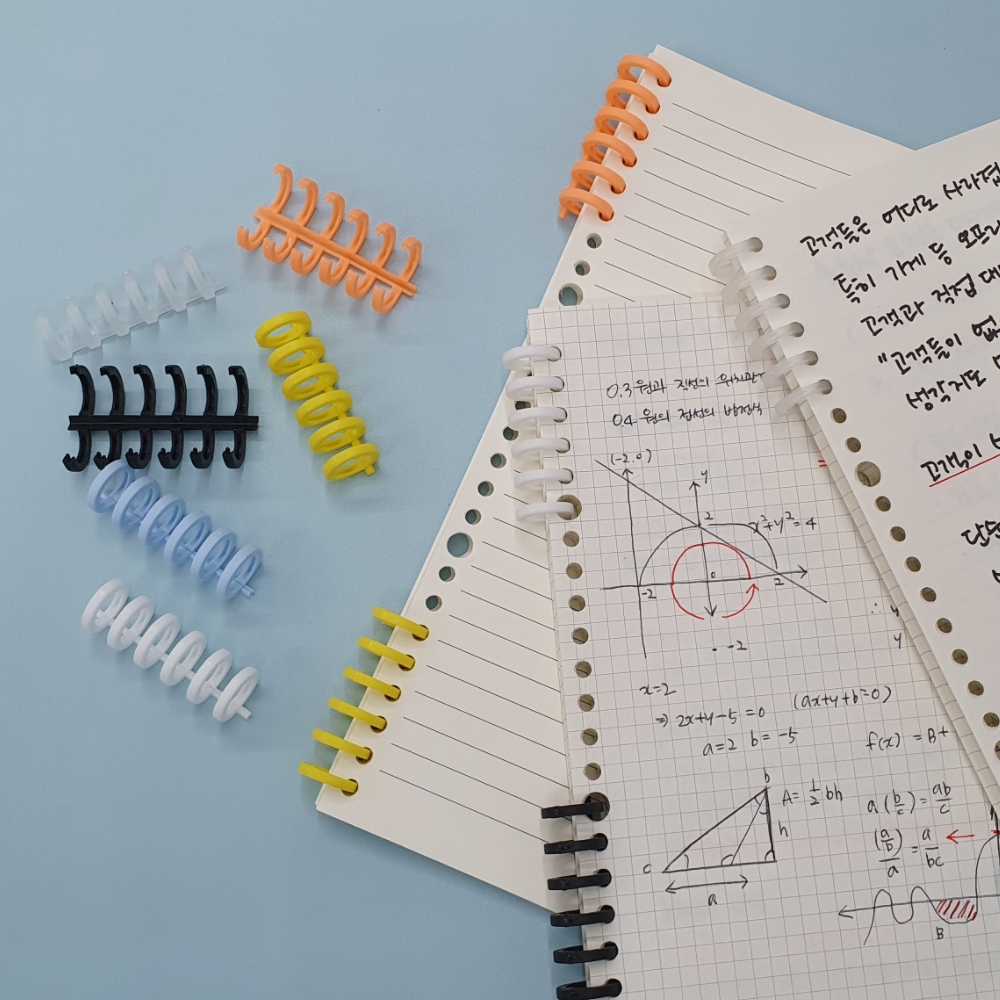 0.3 원과 직선의 위치관
04 원의 접선의 방정식
(-2.0)
y
2
x²+y²=4
0
-2
2
- -2
∴ y
y
x=2
⇒ 2x+y-5=0 (ax+y+b=0)
a=2 b=-5
f(x) = B+
b
A= ½ bh
h
c
a
a(b/c) = ab/c
(a/b)/a = a/bc
B
고객들은 어디로 사라졌
특히 가게 등 오프라
고객과 직접 대
"고객들이 없
생각지도
고객이